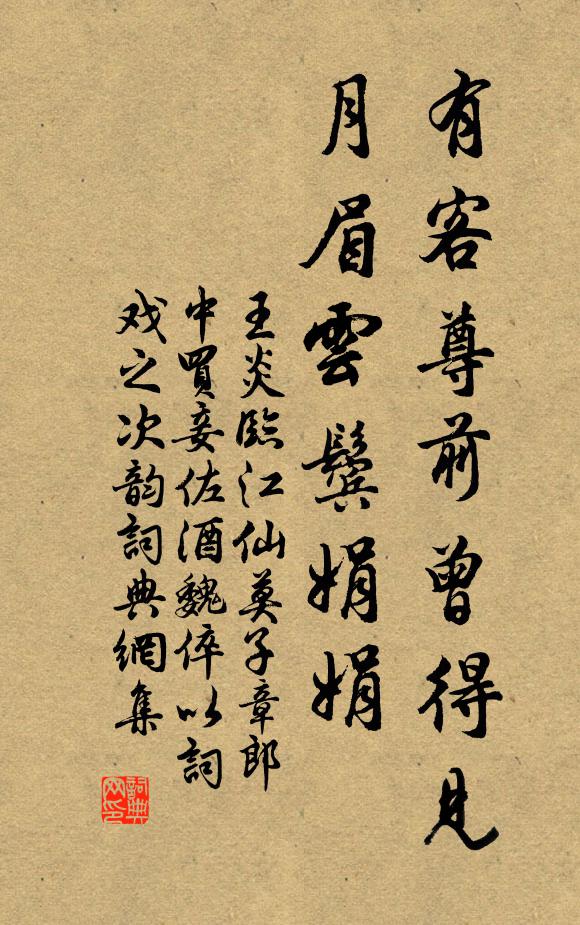 有客尊前曾得見
月眉雲鬓娟娟
王炎臨江仙莫子章郎
中買妾佐酒魏倅以詞
戏之次韵詞典網集
詞典
网印